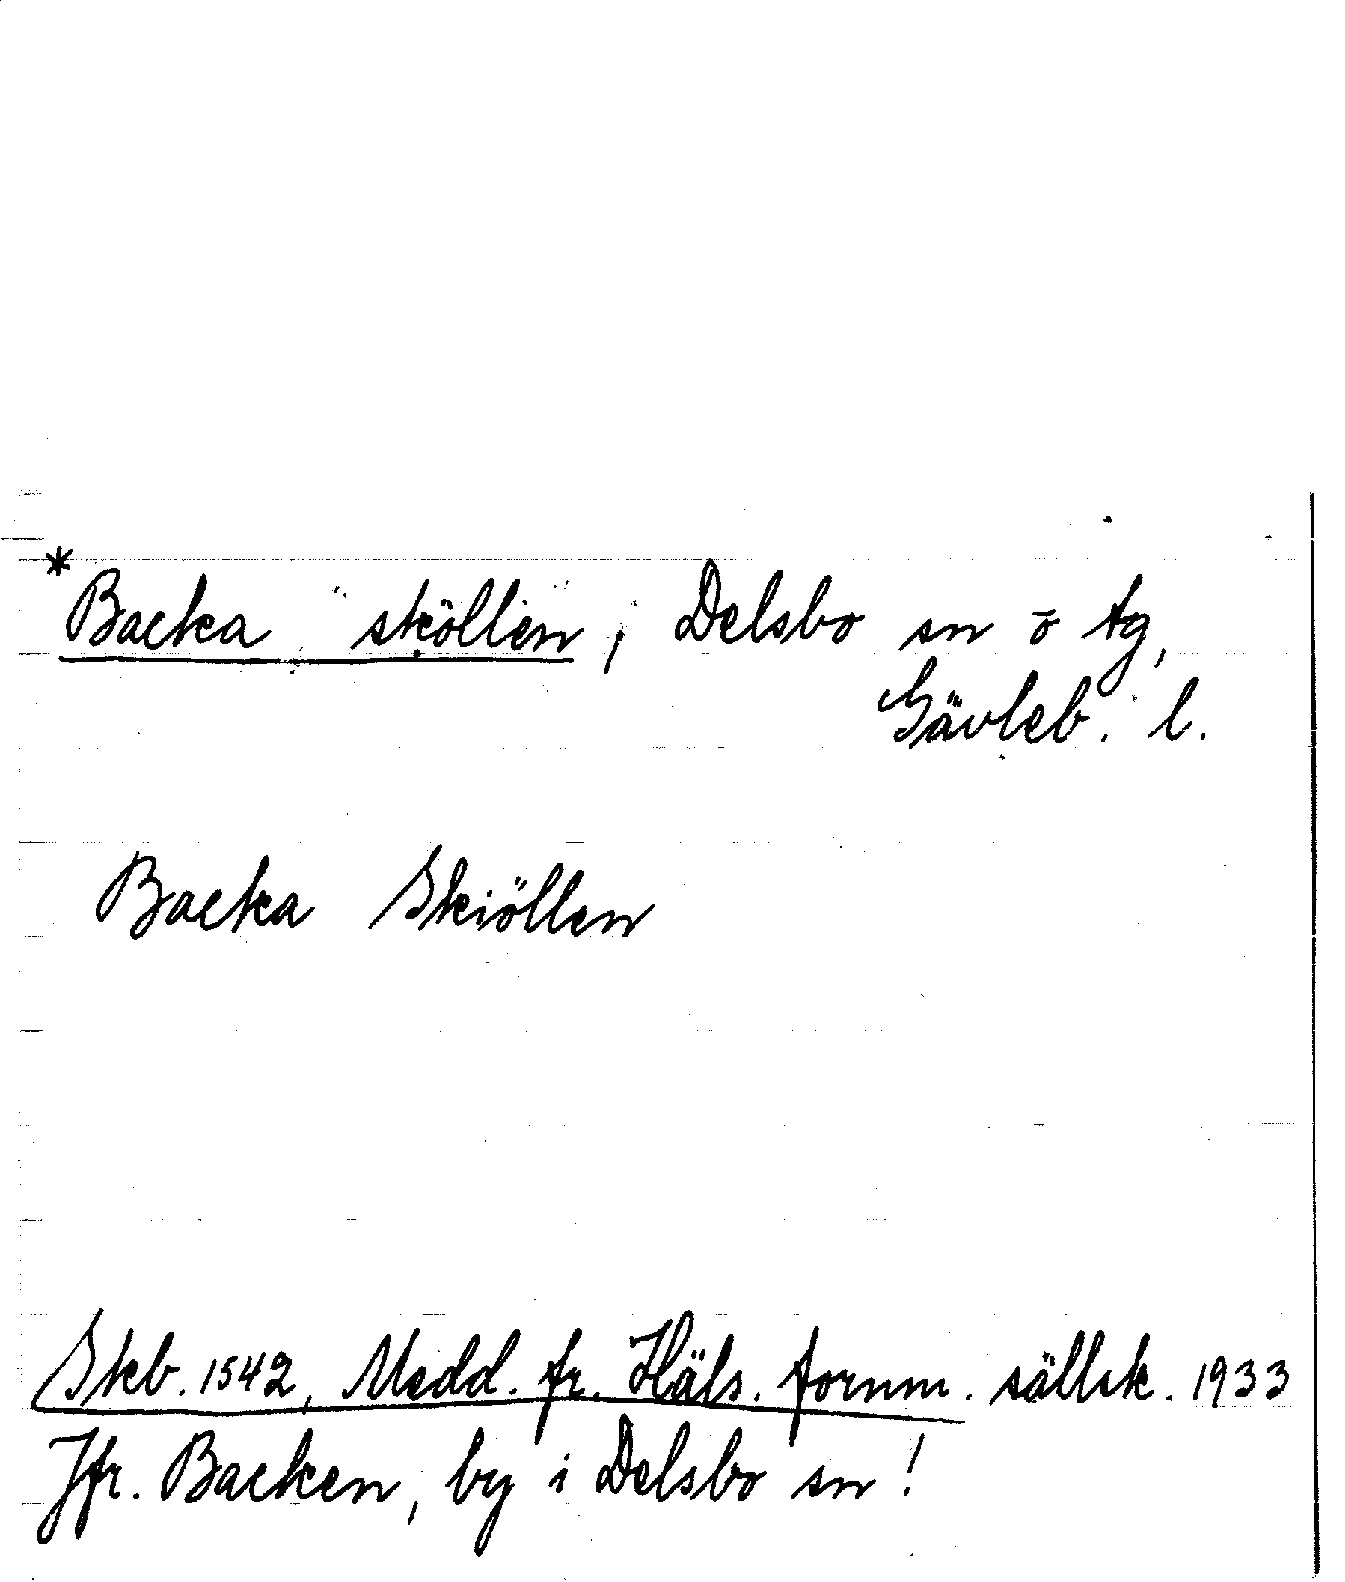 *Backa sköllen, Delsbo sn o tg,
Gävleb. l.
Backa Skiöllen
Skb. 1542, Medd. fr. Häls. fornm. sällsk. 1933
Jfr. Backen, by i Delsbo sn!